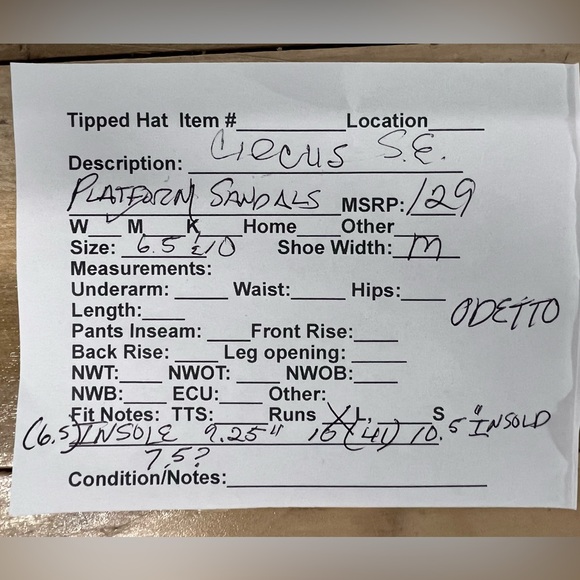 Tipped Hat Item #__________Location_____
Description: Circus S.E.
Platform Sandals MSRP: 129
W___ M___ K___ Home____ Other____
Size: 6.5 & 10 Shoe Width: M
Measurements:
Underarm: _____ Waist:_____ Hips:____
Length:____
ODETTO
Pants Inseam: ____Front Rise:____
Back Rise: ____ Leg opening: _____
NWT:____ NWOT: ____ NWOB:____
NWB:____ ECU:____ Other:
Fit Notes: TTS:_____ Runs X L, _____S
(6.5) INSOLE 9.25" 10 (41) 10.5" INSOLD
7.5?
Condition/Notes:__________________________